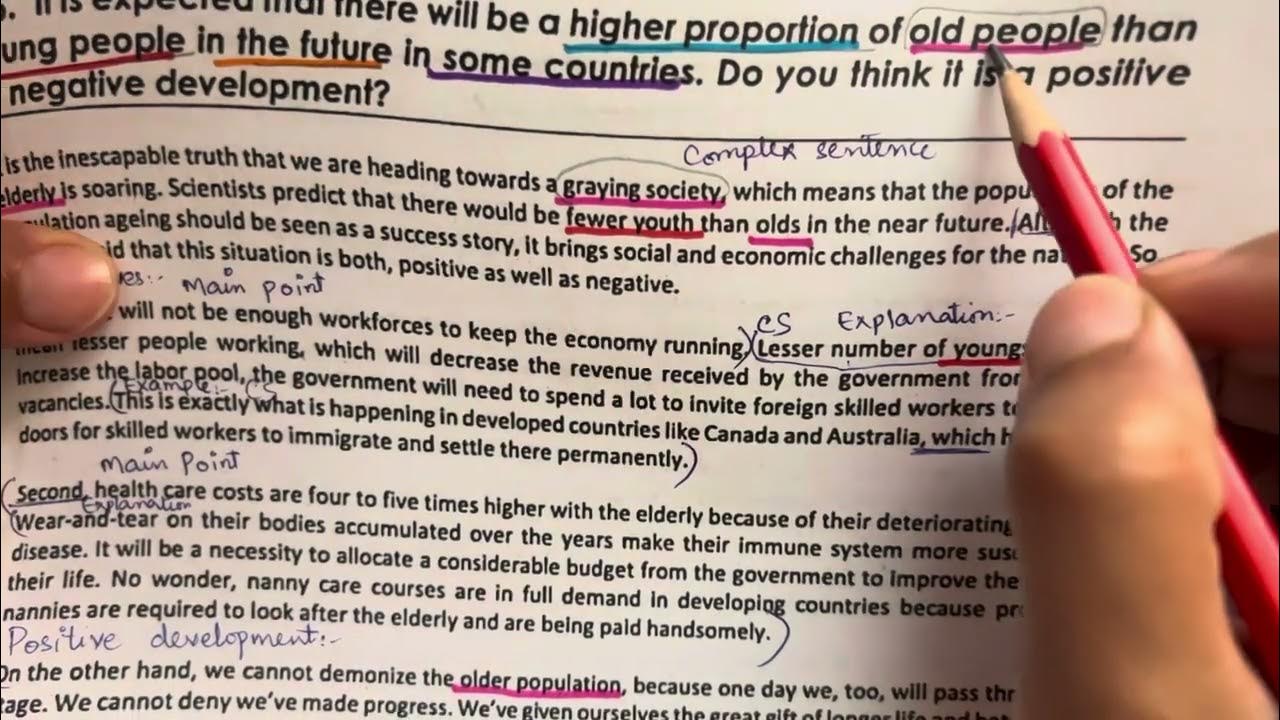 It is expected that there will be a higher proportion of old people than
ung people in the future in some countries. Do you think it is a positive
negative development?
Complex sentence
is the inescapable truth that we are heading towards a graying society, which means that the popu of the
elderly is soaring. Scientists predict that there would be fewer youth than olds in the near future. Alt h the
ulation ageing should be seen as a success story, it brings social and economic challenges for the na So
id that this situation is both, positive as well as negative.
es:- Main point
CS Explanation:-
will not be enough workforces to keep the economy running. Lesser number of young
mean lesser people working, which will decrease the revenue received by the government fror
increase the labor pool, the government will need to spend a lot to invite foreign skilled workers t
(Example:- CS
vacancies. (This is exactly what is happening in developed countries like Canada and Australia, which h
doors for skilled workers to immigrate and settle there permanently.)
Main Point
(Second, health care costs are four to five times higher with the elderly because of their deteriorating
Explanation
(Wear-and-tear on their bodies accumulated over the years make their immune system more sus
disease. It will be a necessity to allocate a considerable budget from the government to improve the
their life. No wonder, nanny care courses are in full demand in developing countries because pr
nannies are required to look after the elderly and are being paid handsomely.)
Positive development:-
On the other hand, we cannot demonize the older population, because one day we, too, will pass thr
tage. We cannot deny we've made progress. We've given ourselves the great gift of longer life and